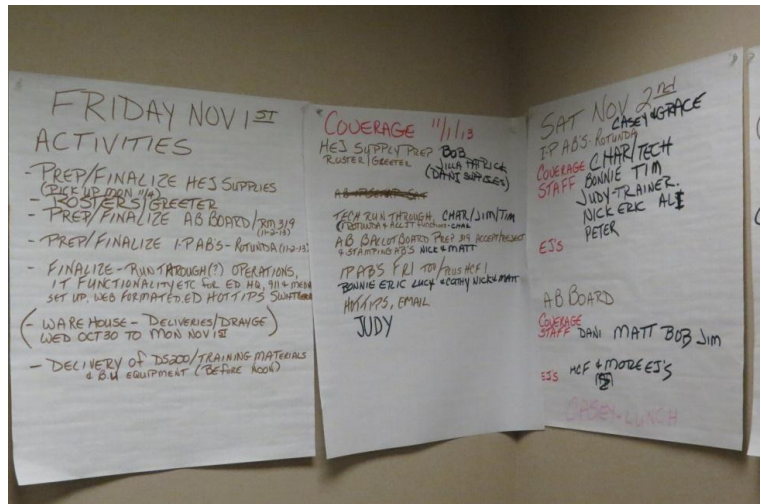 FRIDAY NOV 1ST
ACTIVITIES
- PREP/FINALIZE HEJ SUPPLIES
(PICK UP MON 11/4)
- ROSTERS/GREETER
- PREP/FINALIZE AB BOARD/RM 319
(11-2-13)
- PREP/FINALIZE I-P AB'S - ROTUNDA (11-2-13)
- FINALIZE - RUN TROUGH(?) OPERATIONS,
IT FUNCTIONALITY ETC FOR ED HQ, 911 & MEDIA
SET UP, WEB FORMATED. ED HOT TIPS
(- WAREHOUSE - DELIVERIES/DRAYGE)
WED OCT 30 TO MON NOV 1ST
- DELIVERY OF DS200/TRAINING MATERIALS
& B.U EQUIPMENT (BEFORE NOON)
COVERAGE 11/1/13
HEJ SUPPLY PREP BOB
ROSTER/GREETER PATRICE
(DANI SUPPLIES)
TECH RUN THROUGH, CHAR/JIM/TIM
AB BALLOT BOARD PREP 319 ACCEPT/REJECT
& STAMPING AB'S NICK & MATT
IP AB'S FRI PLUS HCF 1
BONNIE ERIC LUCY & CATHY NICK & MATT
HOT TIPS, EMAIL
JUDY
SAT NOV 2nd
CASEY & GRACE
I-P AB'S - ROTUNDA
COVERAGE CHAR/TECH
STAFF BONNIE TIM
JUDY-TRAINER.
NICK ERIC ALI
PETER
EJ'S
AB BOARD
COVERAGE
STAFF DANI MATT BOB JIM
EJ'S HCF & MORE EJ'S
CASEY-LUNCH